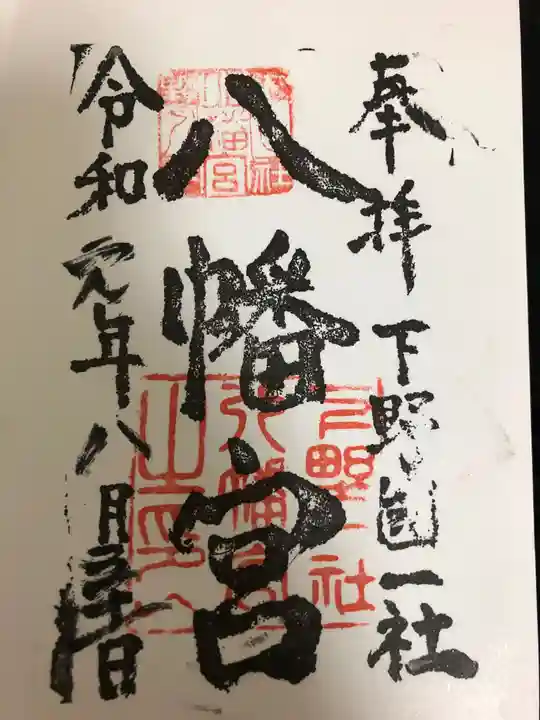 奉拝 下野國一社
八幡宮
令和元年八月